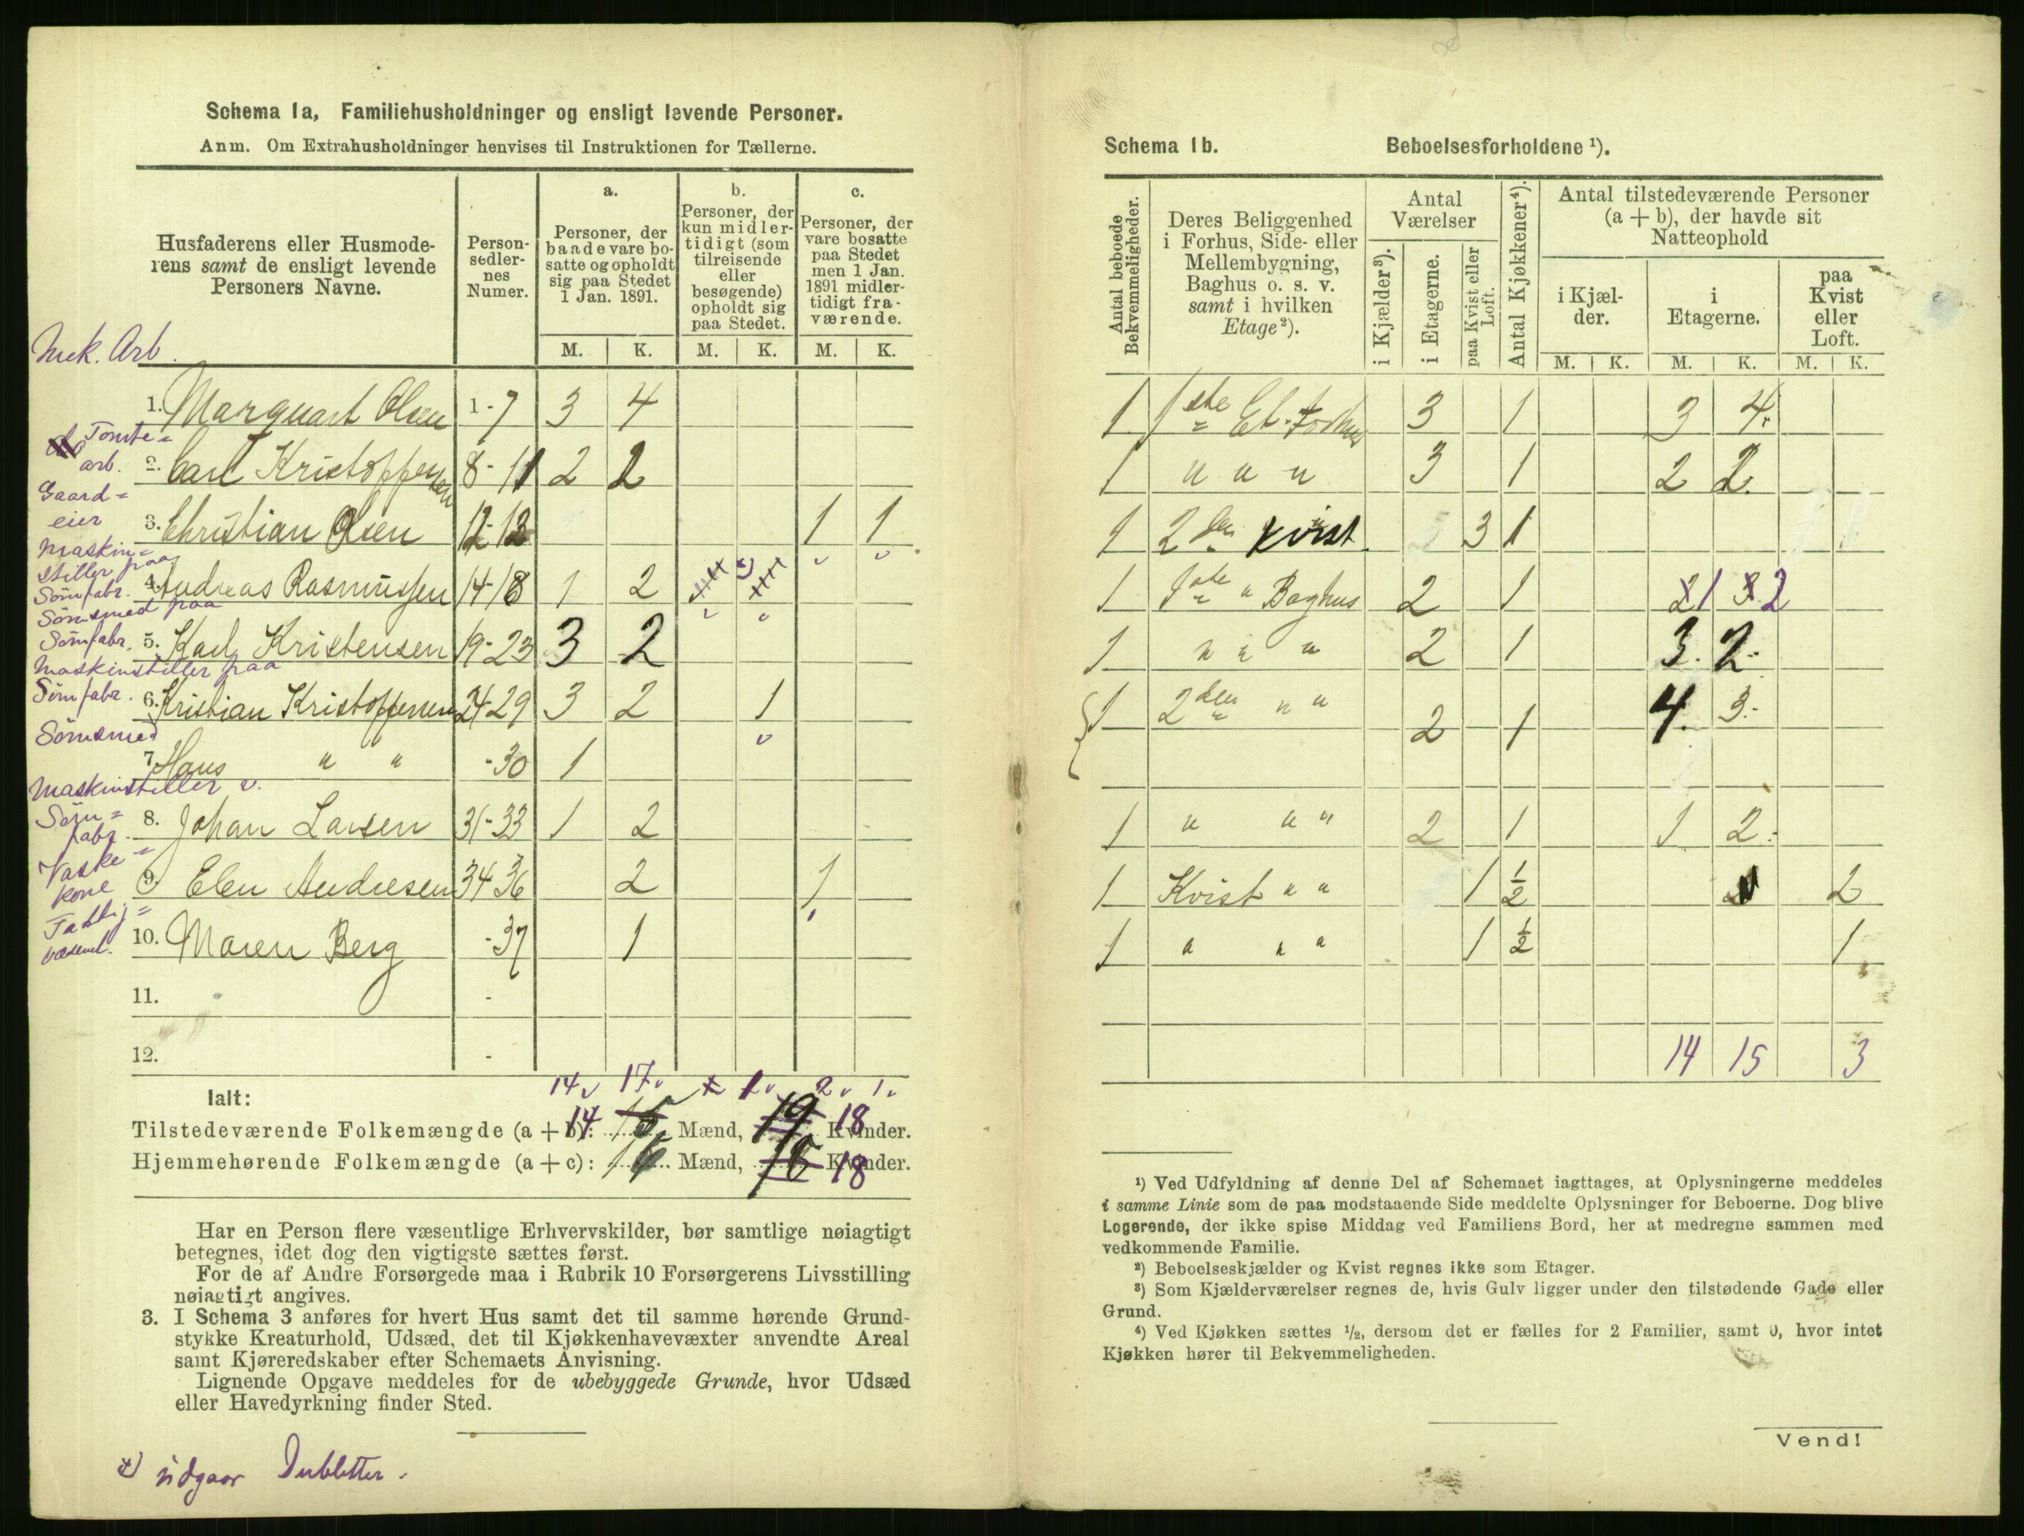 Schema 1a, Familiehusholdninger og ensligt levende Personer.
Anm. Om Extrahusholdninger henvises til Instruktionen for Tællerne.
Husfaderens eller Husmode-
rens samt de ensligt levende
Personers Navne.
Person-
sedler-
nes
Numer.
a.
Personer, der
baade vare bo-
satte og opholdt
sig paa Stedet
1 Jan. 1891.
b.
Personer, der
kun midler-
tidigt (som
tilreisende
eller
besøgende)
opholdt sig
paa Stedet.
c.
Personer, der
vare bosatte
paa Stedet
men 1 Jan.
1891 midler-
tidigt fra-
værende.
M. K. M. K. M. K.
Mek. Arb.
1. Marquart Olsen 1-7 3 4
Tomte=
arb.
2. Carl Kristoffersen 8-11 2 2
Gaard=
eier
3. Christian Olsen 12-13 1 1
Maskin=
stiller paa
Sömfabr.
4. Andreas Rasmussen 14-18 1 2
Sömsmed paa
Sömfabr.
5. Karl Kristensen 19-23 3 2
Maskinstiller paa
Sömfabr.
6. Kristian Kristoffersen 24-29 3 2 1
Sömsmed
7. Hans " " -30 1
Maskinstiller v.
Söm=
fabr.
8. Johan Larsen 31-33 1 2
Vaske=
kone
9. Elen Andresen 34 36 2 1
Fattig=
væsenet.
10. Maren Berg -37 1
11. -
12. -
14 17 1 2 1
Ialt:
Tilstedeværende Folkemængde (a + b): 14 15 Mænd, 19 18 Kvinder.
Hjemmehørende Folkemængde (a + c): 16 Mænd, 18 Kvinder.
Har en Person flere væsentlige Erhvervskilder, bør samtlige nøiagtigt
betegnes, idet dog den vigtigste sættes først.
For de af Andre Forsørgede maa i Rubrik 10 Forsørgerens Livsstilling
nøiagtigt angives.
3. I Schema 3 anføres for hvert Hus samt det til samme hørende Grund-
stykke Kreaturhold, Udsæd, det til Kjøkkenhavevæxter anvendte Areal
samt Kjøreredskaber efter Schemaets Anvisning.
Lignende Opgave meddeles for de ubebyggede Grunde, hvor Udsæd
eller Havedyrkning finder Sted.
x) udgaar Dubletter.
Schema 1b. Beboelsesforholdene ¹).
Antal beboede
Bekvemmeligheder.
Deres Beliggenhed
i Forhus, Side- eller
Mellembygning,
Baghus o. s. v.
samt i hvilken
Etage ²).
Antal
Værelser
i Kjælder ³).
i Etagerne.
paa Kvist eller
Loft.
Antal Kjøkkener ⁴).
Antal tilstedeværende Personer
(a + b), der havde sit
Natteophold
i Kjæl-
der.
i
Etagerne.
paa
Kvist
eller
Loft.
M. K. M. K. M. K.
1 1ste Et. Forhus 3 1 3 4
1 " " " 3 1 2 2
1 2den Kvist 3 1
1 1ste " Baghus 2 1 2 1 3 2
1 " " " 2 1 3 2
1 2den " " 2 1 4 3
1 " " " 2 1 1 2
1 Kvist " " 1 ½ 2
1 " " " 1 ½ 1
14 15 3
¹) Ved Udfyldning af denne Del af Schemaet iagttages, at Oplysningerne meddeles
i samme Linie som de paa modstaaende Side meddelte Oplysninger for Beboerne. Dog blive
Logerende, der ikke spise Middag ved Familiens Bord, her at medregne sammen med
vedkommende Familie.
²) Beboelseskjælder og Kvist regnes ikke som Etager.
³) Som Kjælderværelser regnes de, hvis Gulv ligger under den tilstødende Gade eller
Grund.
⁴) Ved Kjøkken sættes ½, dersom det er fælles for 2 Familier, samt 0, hvor intet
Kjøkken hører til Bekvemmeligheden.
Vend!